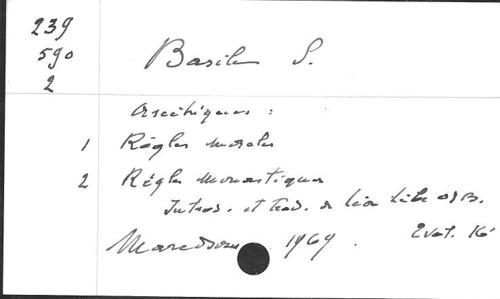 239
590
2
Basile S.
Ascétiques :
1 Règles morales
2 Règles monastiques
Introd. et trad. de Léon Lèbe OSB.
Maredsous 1969. 2 vol. 16°